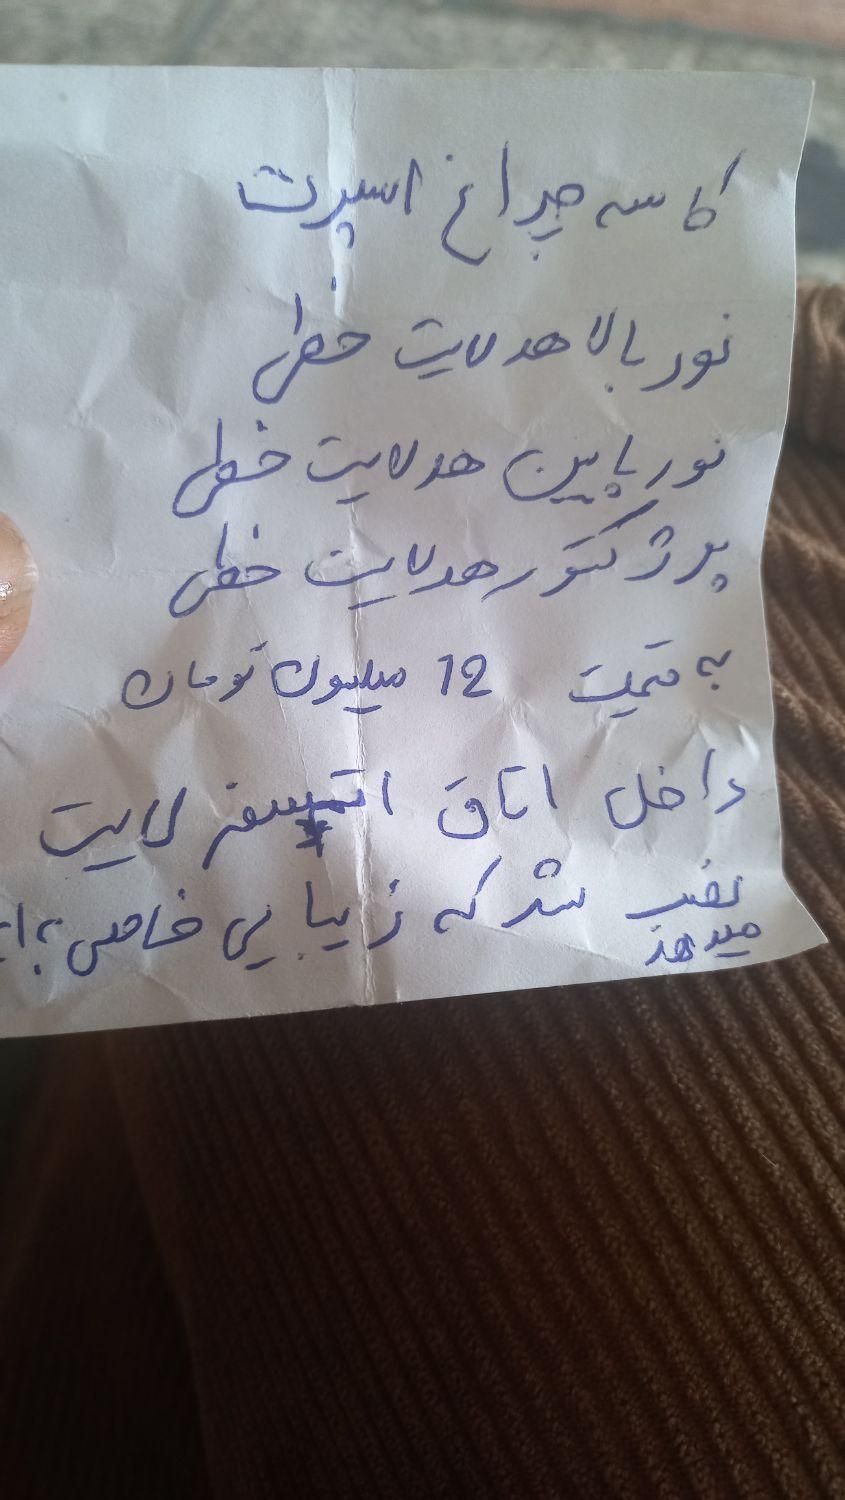 کاسه چراغ اسپرت
نور بالا هدلایت خطی
نور پایین هدلایت خطی
پرژکتور هدلایت خطی
به قیمت 12 میلیون تومان
داخل اتاق اتمسفر لایت
نصب شد که زیبایی خاصی به
میدهد